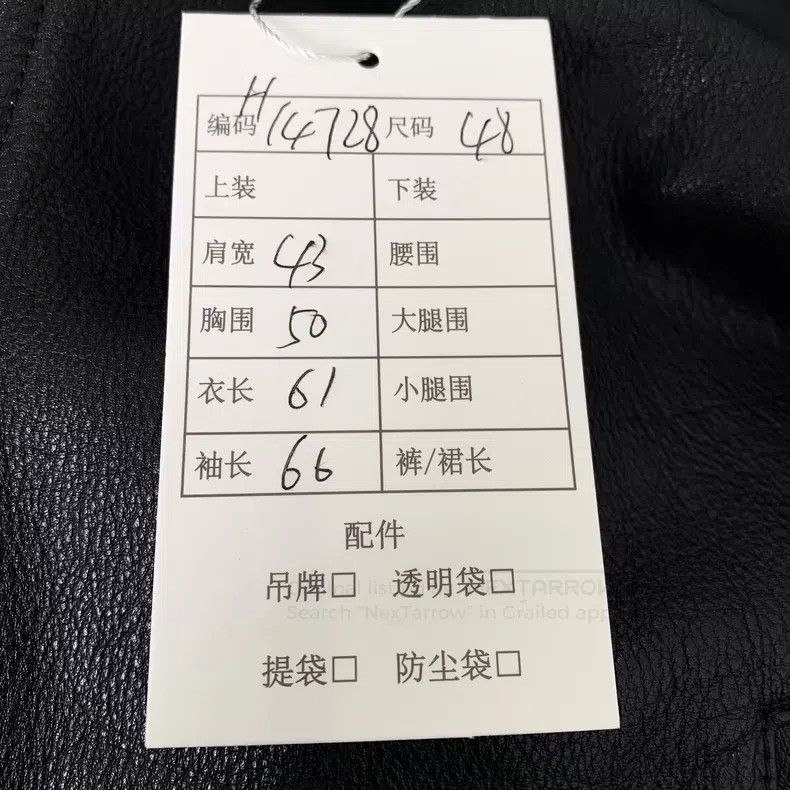 编码 H14728 尺码 48
上装 下装
肩宽 43 腰围
胸围 50 大腿围
衣长 61 小腿围
袖长 66 裤/裙长
配件
吊牌□ 透明袋□
NEXTARROW
Search "NexTarrow" in Grailed app
提袋□ 防尘袋□